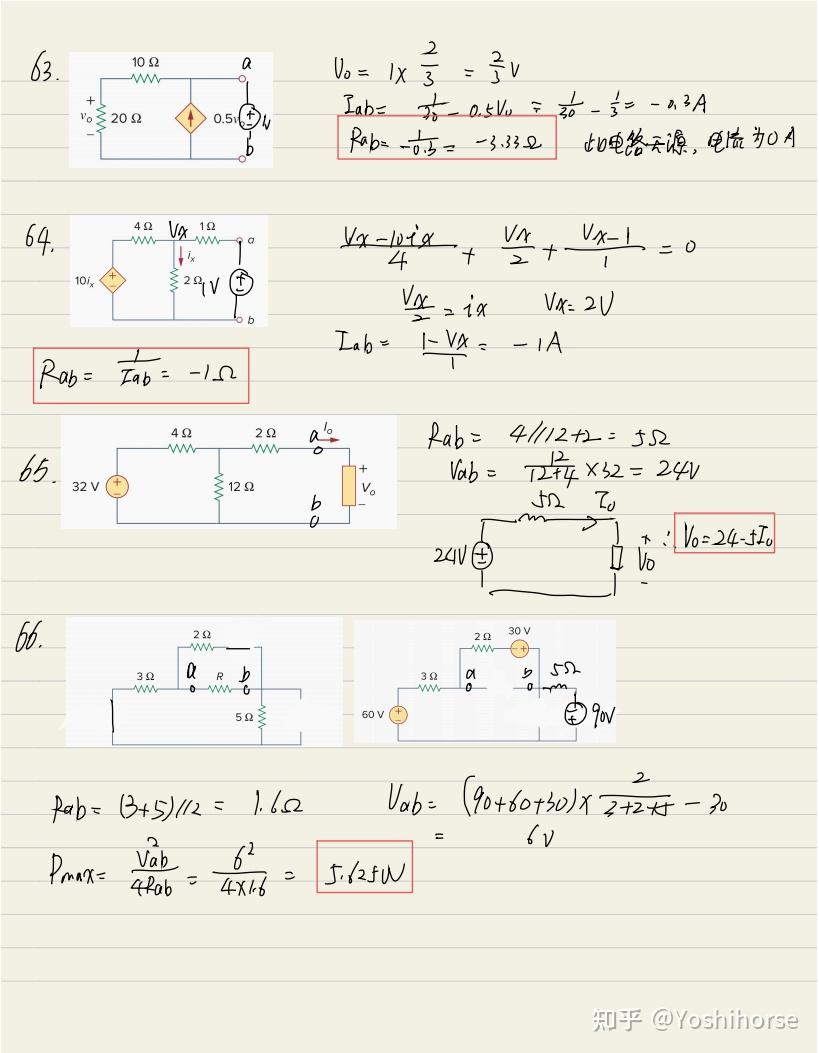 63.
10 Ω
a
+
v₀ 20 Ω
−
0.5v₀
1V
b
V₀ = 1× 2/3 = 2/3 V
Iab = 1/30 − 0.5V₀ = 1/30 − 1/3 = −0.3A
Rab = 1/−0.3 = −3.33Ω
此电路无源，电流为0A
64.
4 Ω Vx 1 Ω
a
iₓ
10iₓ
2 Ω
1V
b
(Vx−10ix)/4 + Vx/2 + (Vx−1)/1 = 0
Vx/2 = ix Vx = 2V
Iab = (1−Vx)/1 = −1A
Rab = 1/Iab = −1Ω
65.
4 Ω 2 Ω a I₀
32 V
12 Ω
+
V₀
−
b
Rab = 4//12+2 = 5Ω
Vab = 12/(12+4) ×32 = 24V
5Ω I₀
24V
+
V₀
−
∴ V₀ = 24−5I₀
66.
2 Ω
3 Ω a R b
5 Ω
2 Ω 30 V
3 Ω a b 5Ω
60 V
90V
Rab = (3+5)//2 = 1.6Ω
Vab = (90+60+30)× 2/(3+2+5) − 30
= 6V
Pmax = Vab²/4Rab = 6²/(4×1.6) = 5.625W
知乎 @Yoshihorse